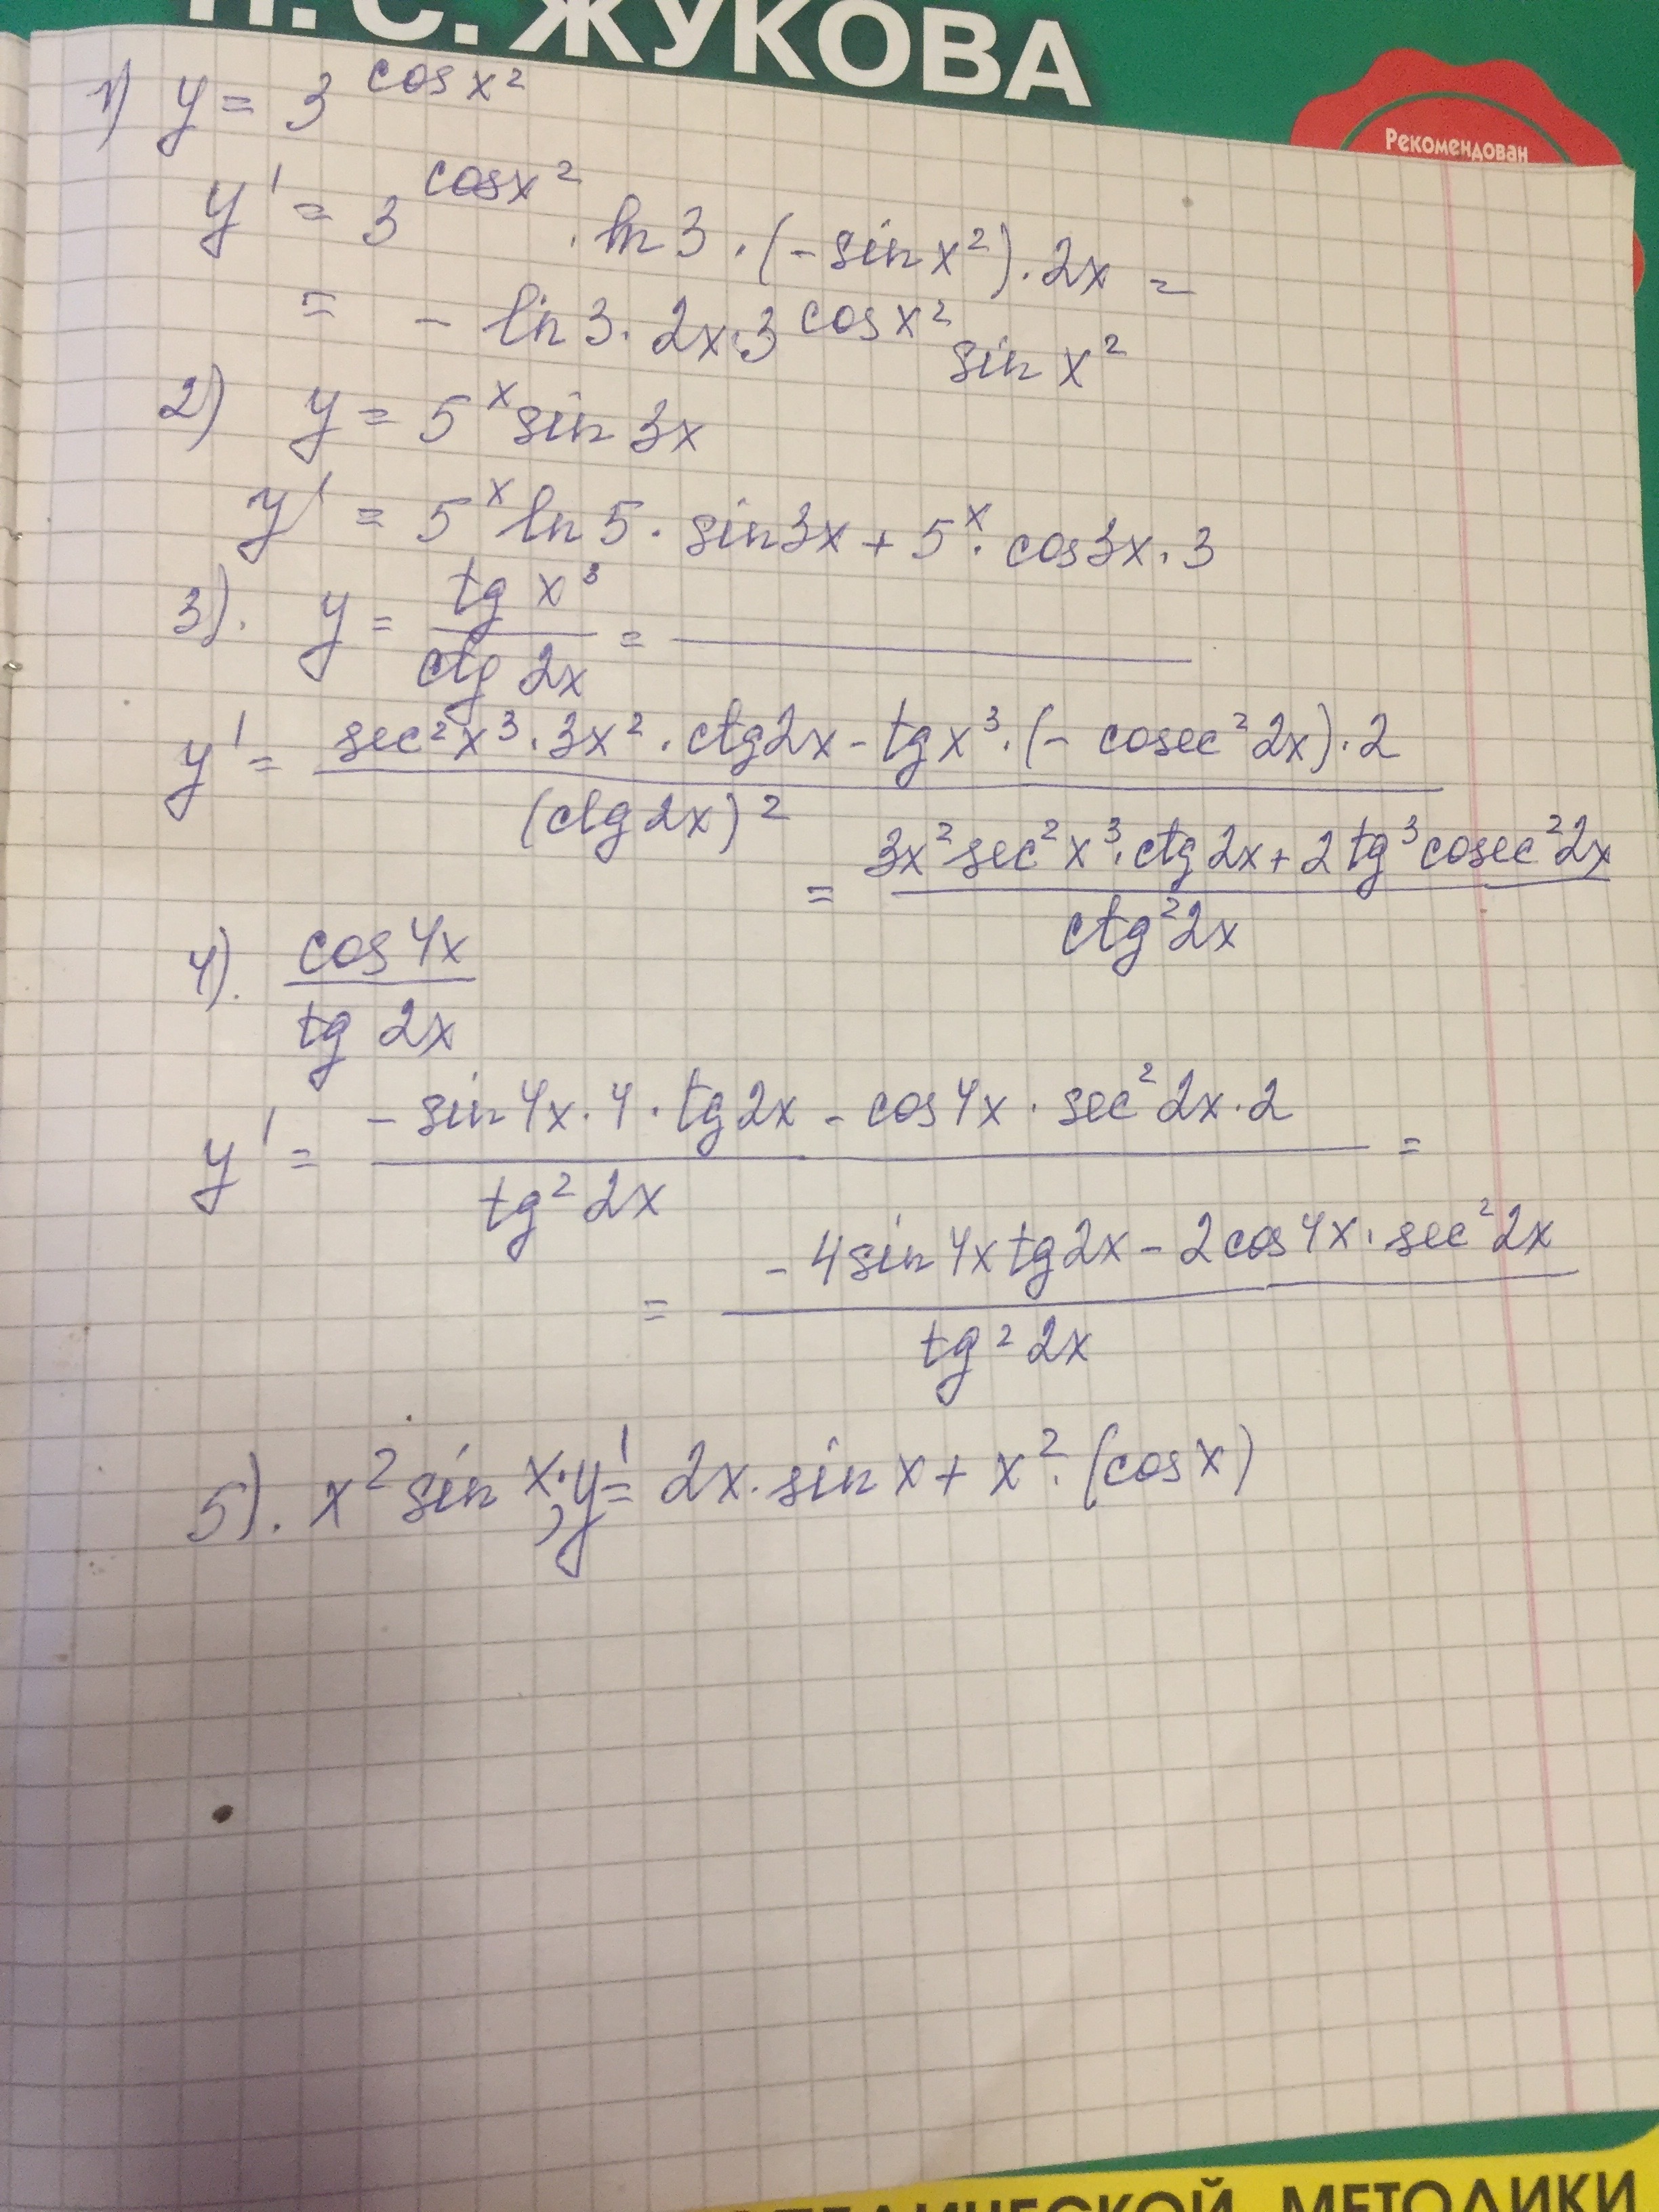 Н. С. ЖУКОВА
Рекомендован
1) y = 3^cosx²
y' = 3^cosx² · ln3 · (-sinx²) · 2x =
= - ln3 · 2x · 3^cosx² sinx²
2) y = 5^x sin3x
y' = 5^x ln5 · sin3x + 5^x · cos3x · 3
3). y = tg x³ / ctg 2x =
y' = sec²x³ · 3x² · ctg2x - tgx³ · (- cosec²2x) · 2 / (ctg2x)²
= 3x²sec²x³ · ctg2x + 2tg³cosec²2x / ctg²2x
4). cos4x / tg 2x
y' = -sin4x · 4 · tg2x - cos4x · sec²2x · 2 / tg²2x =
= -4sin4xtg2x - 2cos4x · sec²2x / tg²2x
5). x² sin x; y' = 2x · sinx + x² · (cosx)
МЕТОДИКИ